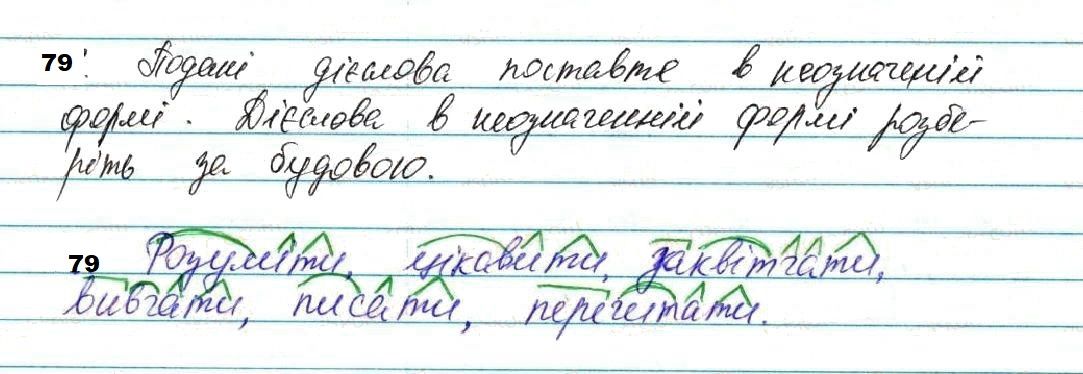 79'. Подані дієслова поставте в неозначеній
формі. Дієслова в неозначенній формі розбе-
ріть за будовою.
79 Розуміти, цікавити, заквітчати,
вивчати, писати, перечитати.